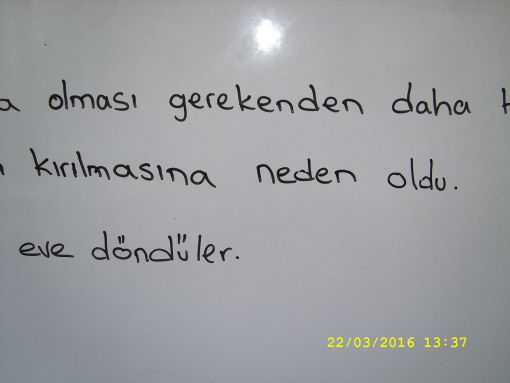 a olması gerekenden daha
kırılmasına neden oldu.
eve döndüler.
22/03/2016 13:37